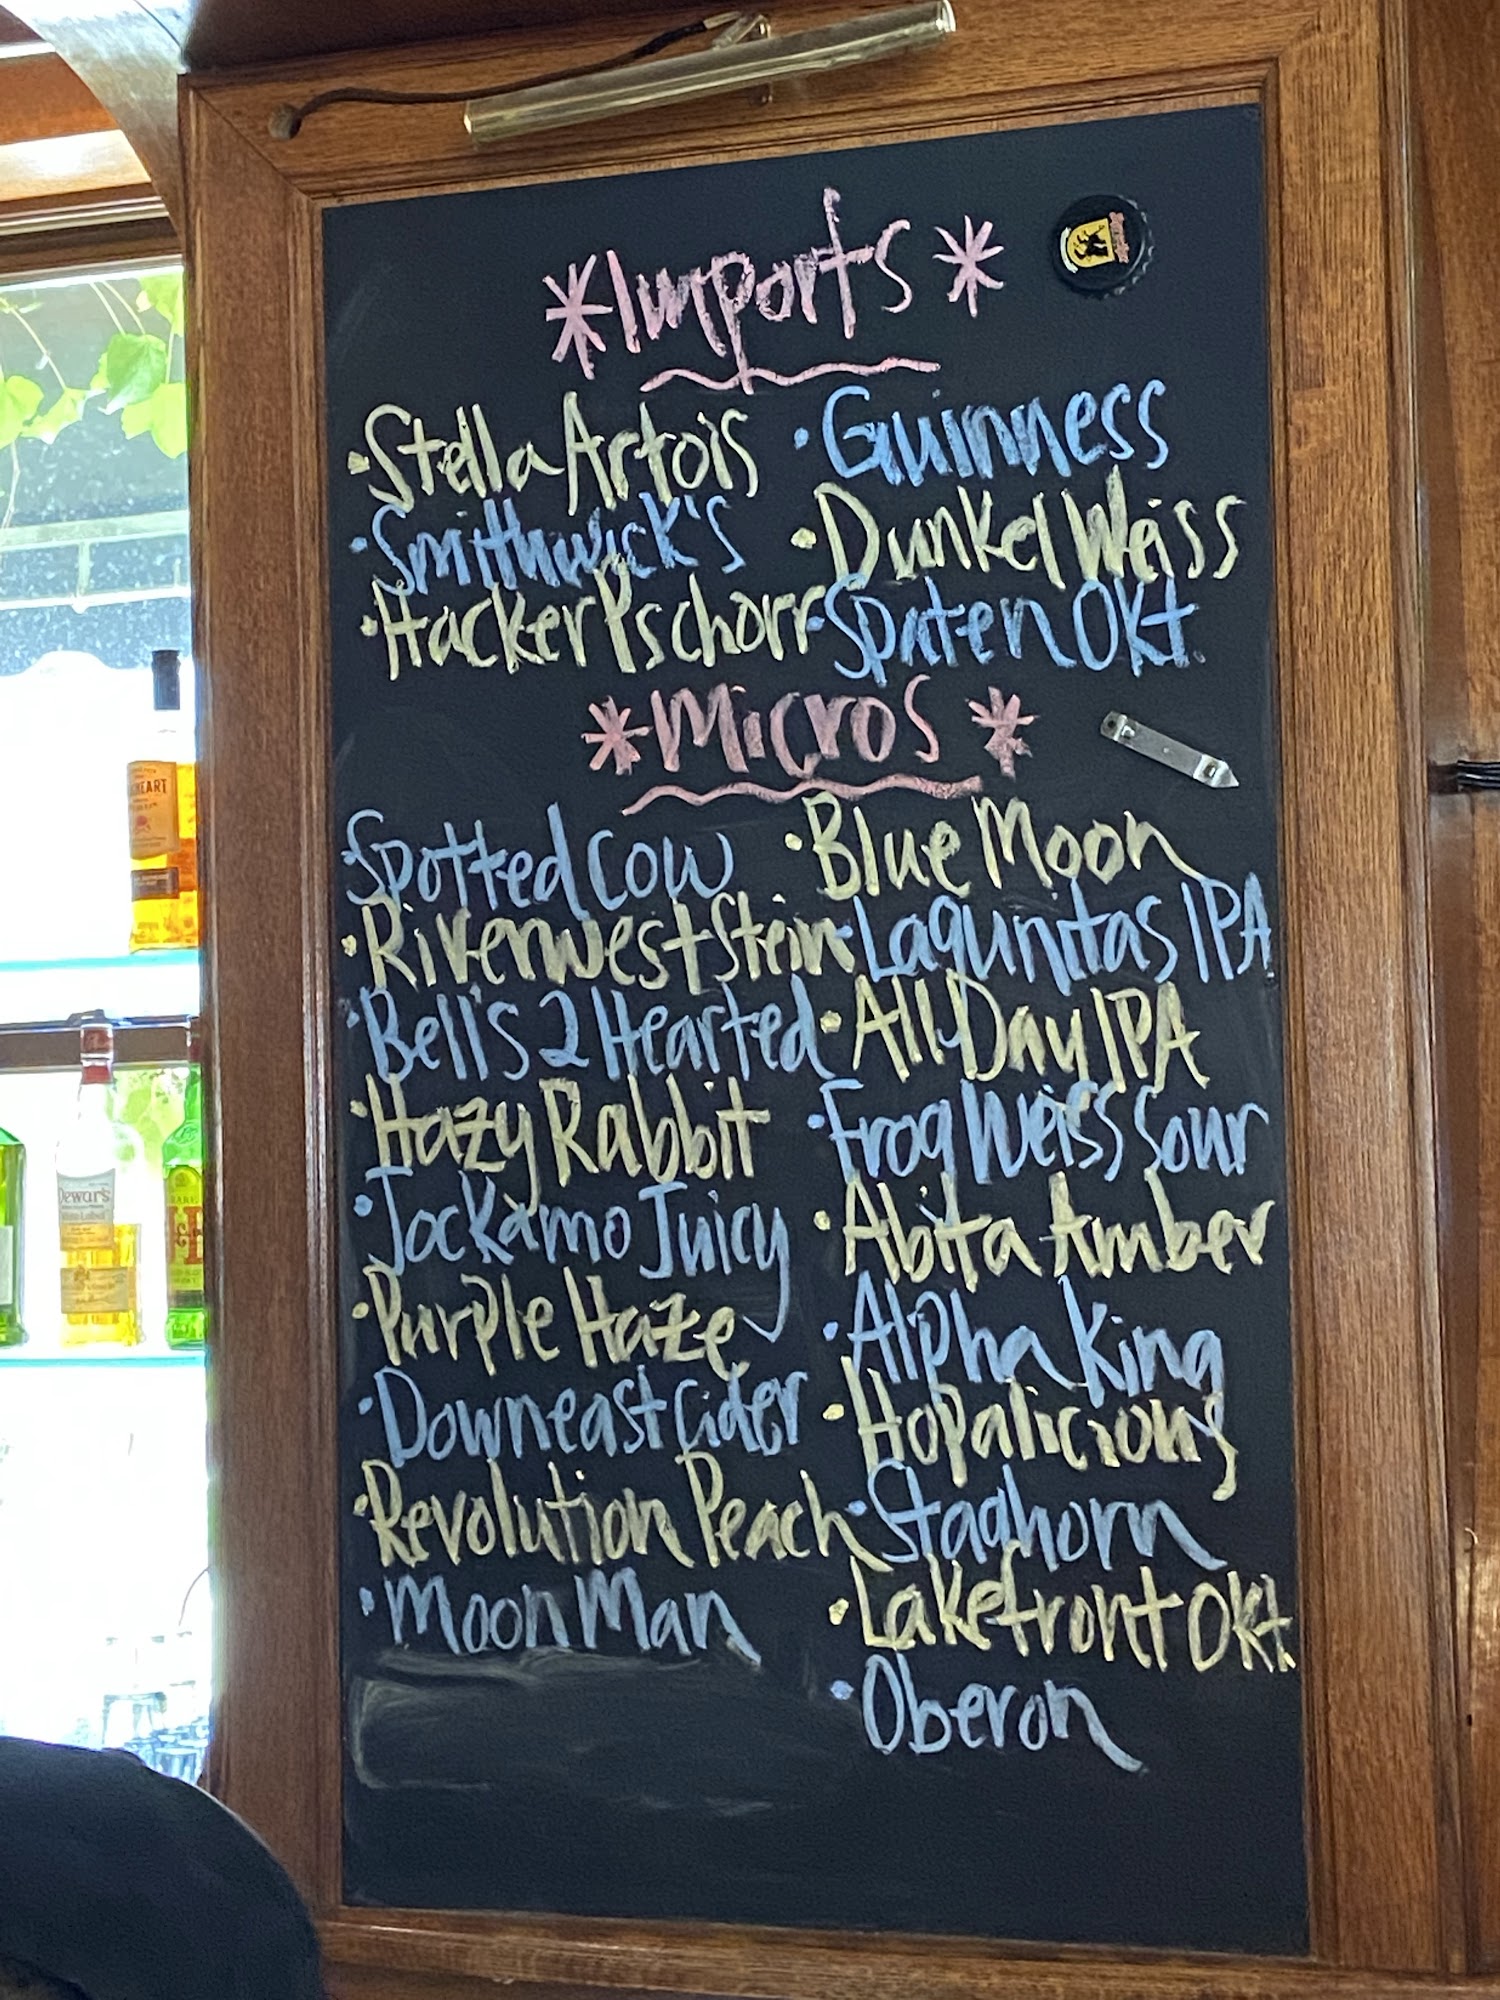 *Imports*
• Stella Artois
• Smithwick's
• Hacker Pschorr
• Guinness
• Dunkel Weiss
• Spaten Okt.
*Micros*
• Spotted Cow
• Riverwest Stein
• Bell's 2 Hearted
• Hazy Rabbit
• Jockamo Juicy
• Purple Haze
• Downeast Cider
• Revolution Peach
• Moon Man
• Blue Moon
• Lagunitas IPA
• All Day IPA
• Frog Weiss Sour
• Abita Amber
• Alpha King
• Hopalicious
• Staghorn
• Lakefront Okt.
• Oberon
Dewar's